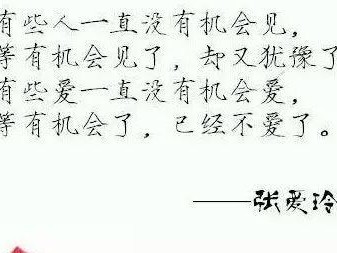 有些人一直没有机会见，
等有机会见了，却又犹豫了
有些爱一直没有机会爱，
等有机会了，已经不爱了。
——张爱玲